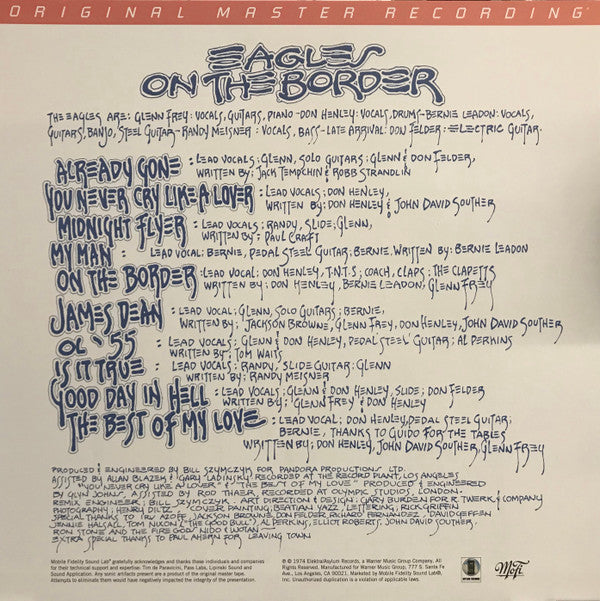 ORIGINAL MASTER RECORDING
EAGLES
ON THE BORDER
THE EAGLES ARE: GLENN FREY: VOCALS, GUITARS, PIANO - DON HENLEY: VOCALS, DRUMS - BERNIE LEADON: VOCALS,
GUITARS, BANJO, STEEL GUITAR - RANDY MEISNER: VOCALS, BASS - LATE ARRIVAL: DON FELDER: ELECTRIC GUITAR.
ALREADY GONE : LEAD VOCALS: GLENN, SOLO GUITARS: GLENN & DON FELDER,
WRITTEN BY: JACK TEMPCHIN & ROBB STRANDLIN
YOU NEVER CRY LIKE A LOVER : LEAD VOCALS: DON HENLEY,
WRITTEN BY: DON HENLEY & JOHN DAVID SOUTHER
MIDNIGHT FLYER : LEAD VOCALS: RANDY, SLIDE; GLENN,
WRITTEN BY: PAUL CRAFT
MY MAN : LEAD VOCAL: BERNIE, PEDAL STEEL GUITAR; BERNIE, WRITTEN BY: BERNIE LEADON
ON THE BORDER : LEAD VOCAL: DON HENLEY, T.N.T.S; COACH, CLAPS: THE CLAPETTS
WRITTEN BY: DON HENLEY, BERNIE LEADON, GLENN FREY
JAMES DEAN : LEAD VOCAL; GLENN, SOLO GUITARS; BERNIE,
WRITTEN BY: JACKSON BROWNE, GLENN FREY, DON HENLEY, JOHN DAVID SOUTHER
OL' 55 : LEAD VOCALS: GLENN & DON HENLEY, PEDAL STEEL GUITAR: AL PERKINS
WRITTEN BY: TOM WAITS
IS IT TRUE : LEAD VOCALS: RANDY, SLIDE GUITAR: GLENN
WRITTEN BY: RANDY MEISNER
GOOD DAY IN HELL : LEAD VOCALS: GLENN & DON HENLEY, SLIDE; DON FELDER
WRITTEN BY: GLENN FREY & DON HENLEY
THE BEST OF MY LOVE : LEAD VOCAL: DON HENLEY, PEDAL STEEL GUITAR;
BERNIE, THANKS TO GUIDO FOR THE TABLES
WRITTEN BY: DON HENLEY, JOHN DAVID SOUTHER, GLENN FREY
PRODUCED & ENGINEERED BY BILL SZYMCZYK FOR PANDORA PRODUCTIONS LTD.
ASSISTED BY ALLAN BLAZEK & GARY LADINSKY RECORDED AT THE RECORD PLANT, LOS ANGELES
"YOU NEVER CRY LIKE A LOVER" & "THE BEST OF MY LOVE" PRODUCED & ENGINEERED
BY GLYN JOHNS, ASSISTED BY ROD THAER RECORDED AT OLYMPIC STUDIOS, LONDON.
REMIX ENGINEER: BILL SZYMCZYK. ART DIRECTION & DESIGN: GARY BURDEN FOR R. TWERK & COMPANY
PHOTOGRAPHY: HENRY DILTZ. COVER PAINTING: BEATIAN YAZZ, LETTERING, RICK GRIFFIN
SPECIAL THANKS TO IRV AZOFF, JACKSON BROWNE, DON FELDER, RICHARD FERNANDEZ, DAVID GEFFEN
JENNIE HALSALL, TOM NIXON ("THE GOOD BULL"), AL PERKINS, ELLIOT ROBERTS, JOHN DAVID SOUTHER.
RON STONE AND THE FIRE GOD NIDO & WOMAN
EXTRA SPECIAL THANKS TO PAUL AHERN FOR LEAVING TOWN
Mobile Fidelity Sound Lab® gratefully acknowledges and thanks these individuals and companies
for their technical support and expertise: Tim de Paravicini, Pass Labs, Lipinski Sound and
Sound Application. Any sonic artifacts present are a product of the original master tape.
Attempts to eliminate them would have negatively impacted the integrity of the presentation.
℗ © 1974 Elektra/Asylum Records, a Warner Music Group Company. Manufactured
by Warner Music Group, 777 S. Santa Fe
Ave., Los Angeles, CA 90021. Marketed by Mobile Fidelity Sound Lab®,
Inc. Unauthorized duplication is a violation of applicable laws.
MoFi